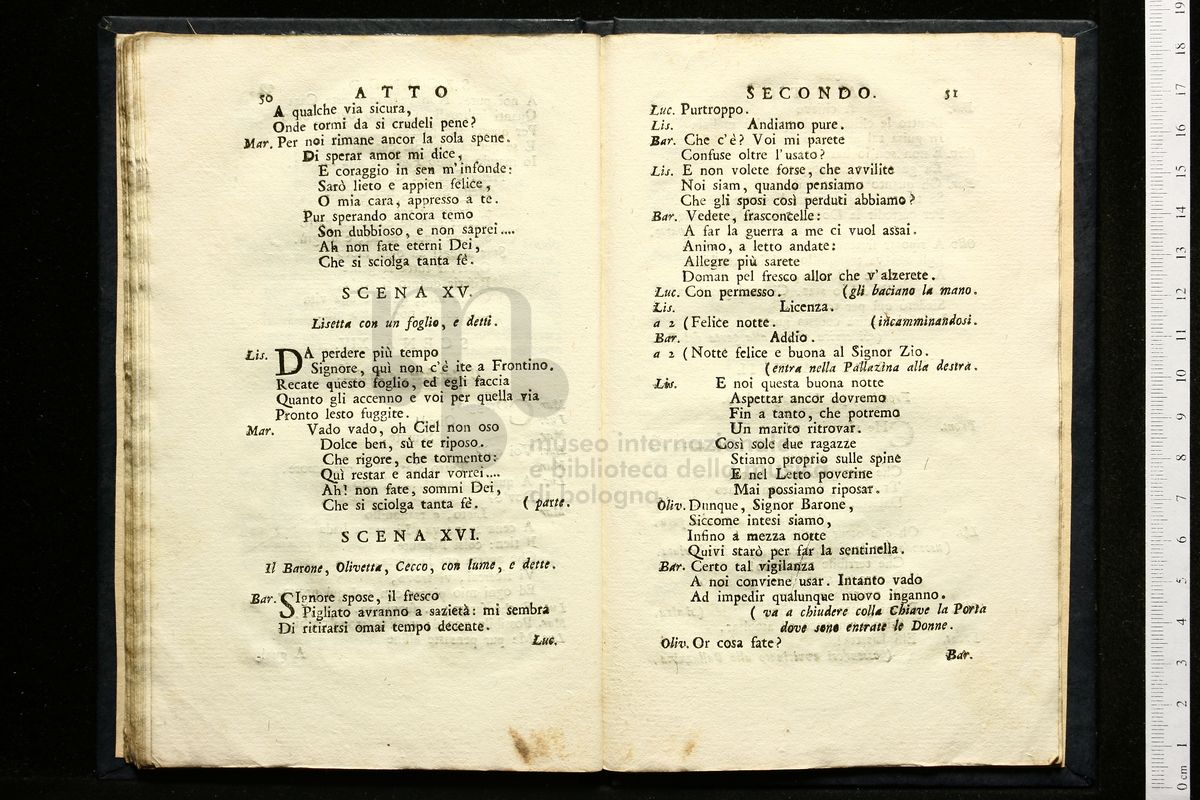 50 ATTO
A qualche via sicura,
Onde tormi da si crudeli pene?
Mar. Per noi rimane ancor la sola spene.
Di sperar amor mi dice,
E coraggio in sen m'infonde:
Sarò lieto e appien felice,
O mia cara, appresso a te.
Pur sperando ancora temo
Son dubbioso, e non saprei....
Ah non fate eterni Dei,
Che si sciolga tanta fè.
SCENA XV.
Lisetta con un foglio, e detti.
Lis. DA perdere più tempo
Signore, quì non c'è ite a Frontino.
Recate questo foglio, ed egli faccia
Quanto gli accenno e voi per quella via
Pronto lesto fuggite.
Mar. Vado vado, oh Ciel non oso
Dolce ben, sù te riposo.
Che rigore, che tormento:
Quì restar e andar vorrei....
Ah! non fate, sommi Dei,
Che si sciolga tanta fè. (parte.
SCENA XVI.
Il Barone, Olivetta, Cecco, con lume, e dette.
Bar. SIgnore spose, il fresco
Pigliato avranno a sazietà: mi sembra
Di ritirarsi omai tempo decente.
Luc.
SECONDO. 51
Luc. Purtroppo.
Lis. Andiamo pure.
Bar. Che c'è? Voi mi parete
Confuse oltre l'usato?
Lis. E non volete forse, che avvilite
Noi siam, quando pensiamo
Che gli sposi così perduti abbiamo?
Bar. Vedete, frasconcelle:
A far la guerra a me ci vuol assai.
Animo, a letto andate:
Allegre più sarete
Doman pel fresco allor che v'alzerete.
Luc. Con permesso. (gli baciano la mano.
Lis. Licenza.
a 2 (Felice notte. (incamminandosi.
Bar. Addio.
a 2 (Notte felice e buona al Signor Zio.
(entra nella Pallazina alla destra.
Lis. E noi questa buona notte
Aspettar ancor dovremo
Fin a tanto, che potremo
Un marito ritrovar.
Così sole due ragazze
Stiamo proprio sulle spine
E nel Letto poverine
Mai possiamo riposar.
Oliv. Dunque, Signor Barone,
Siccome intesi siamo,
Infino a mezza notte
Quivi starò per far la sentinella.
Bar. Certo tal vigilanza
A noi conviene usar. Intanto vado
Ad impedir qualunque nuovo inganno.
( va a chiudere colla Chiave la Porta
dove sono entrate le Donne.
Oliv. Or cosa fate?
Bar.
museo internazionale
e biblioteca della musica
di bologna
0 cm 1 2 3 4 5 6 7 8 9 10 11 12 13 14 15 16 17 18 19